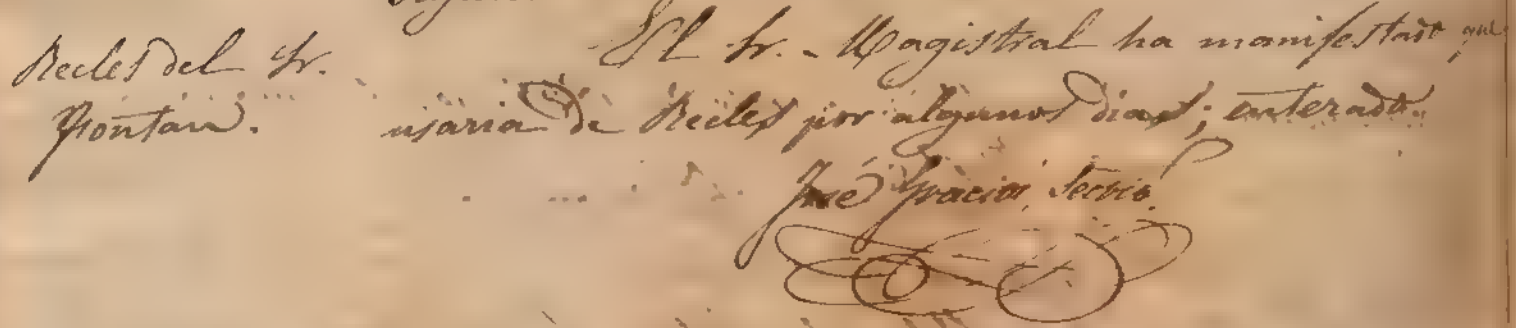 Recles del Sr.
Fontan.
El Sr. Magistral ha manifestado que
usaria de Recles por algunos dias; enterado.
José Gracia, Secrio.